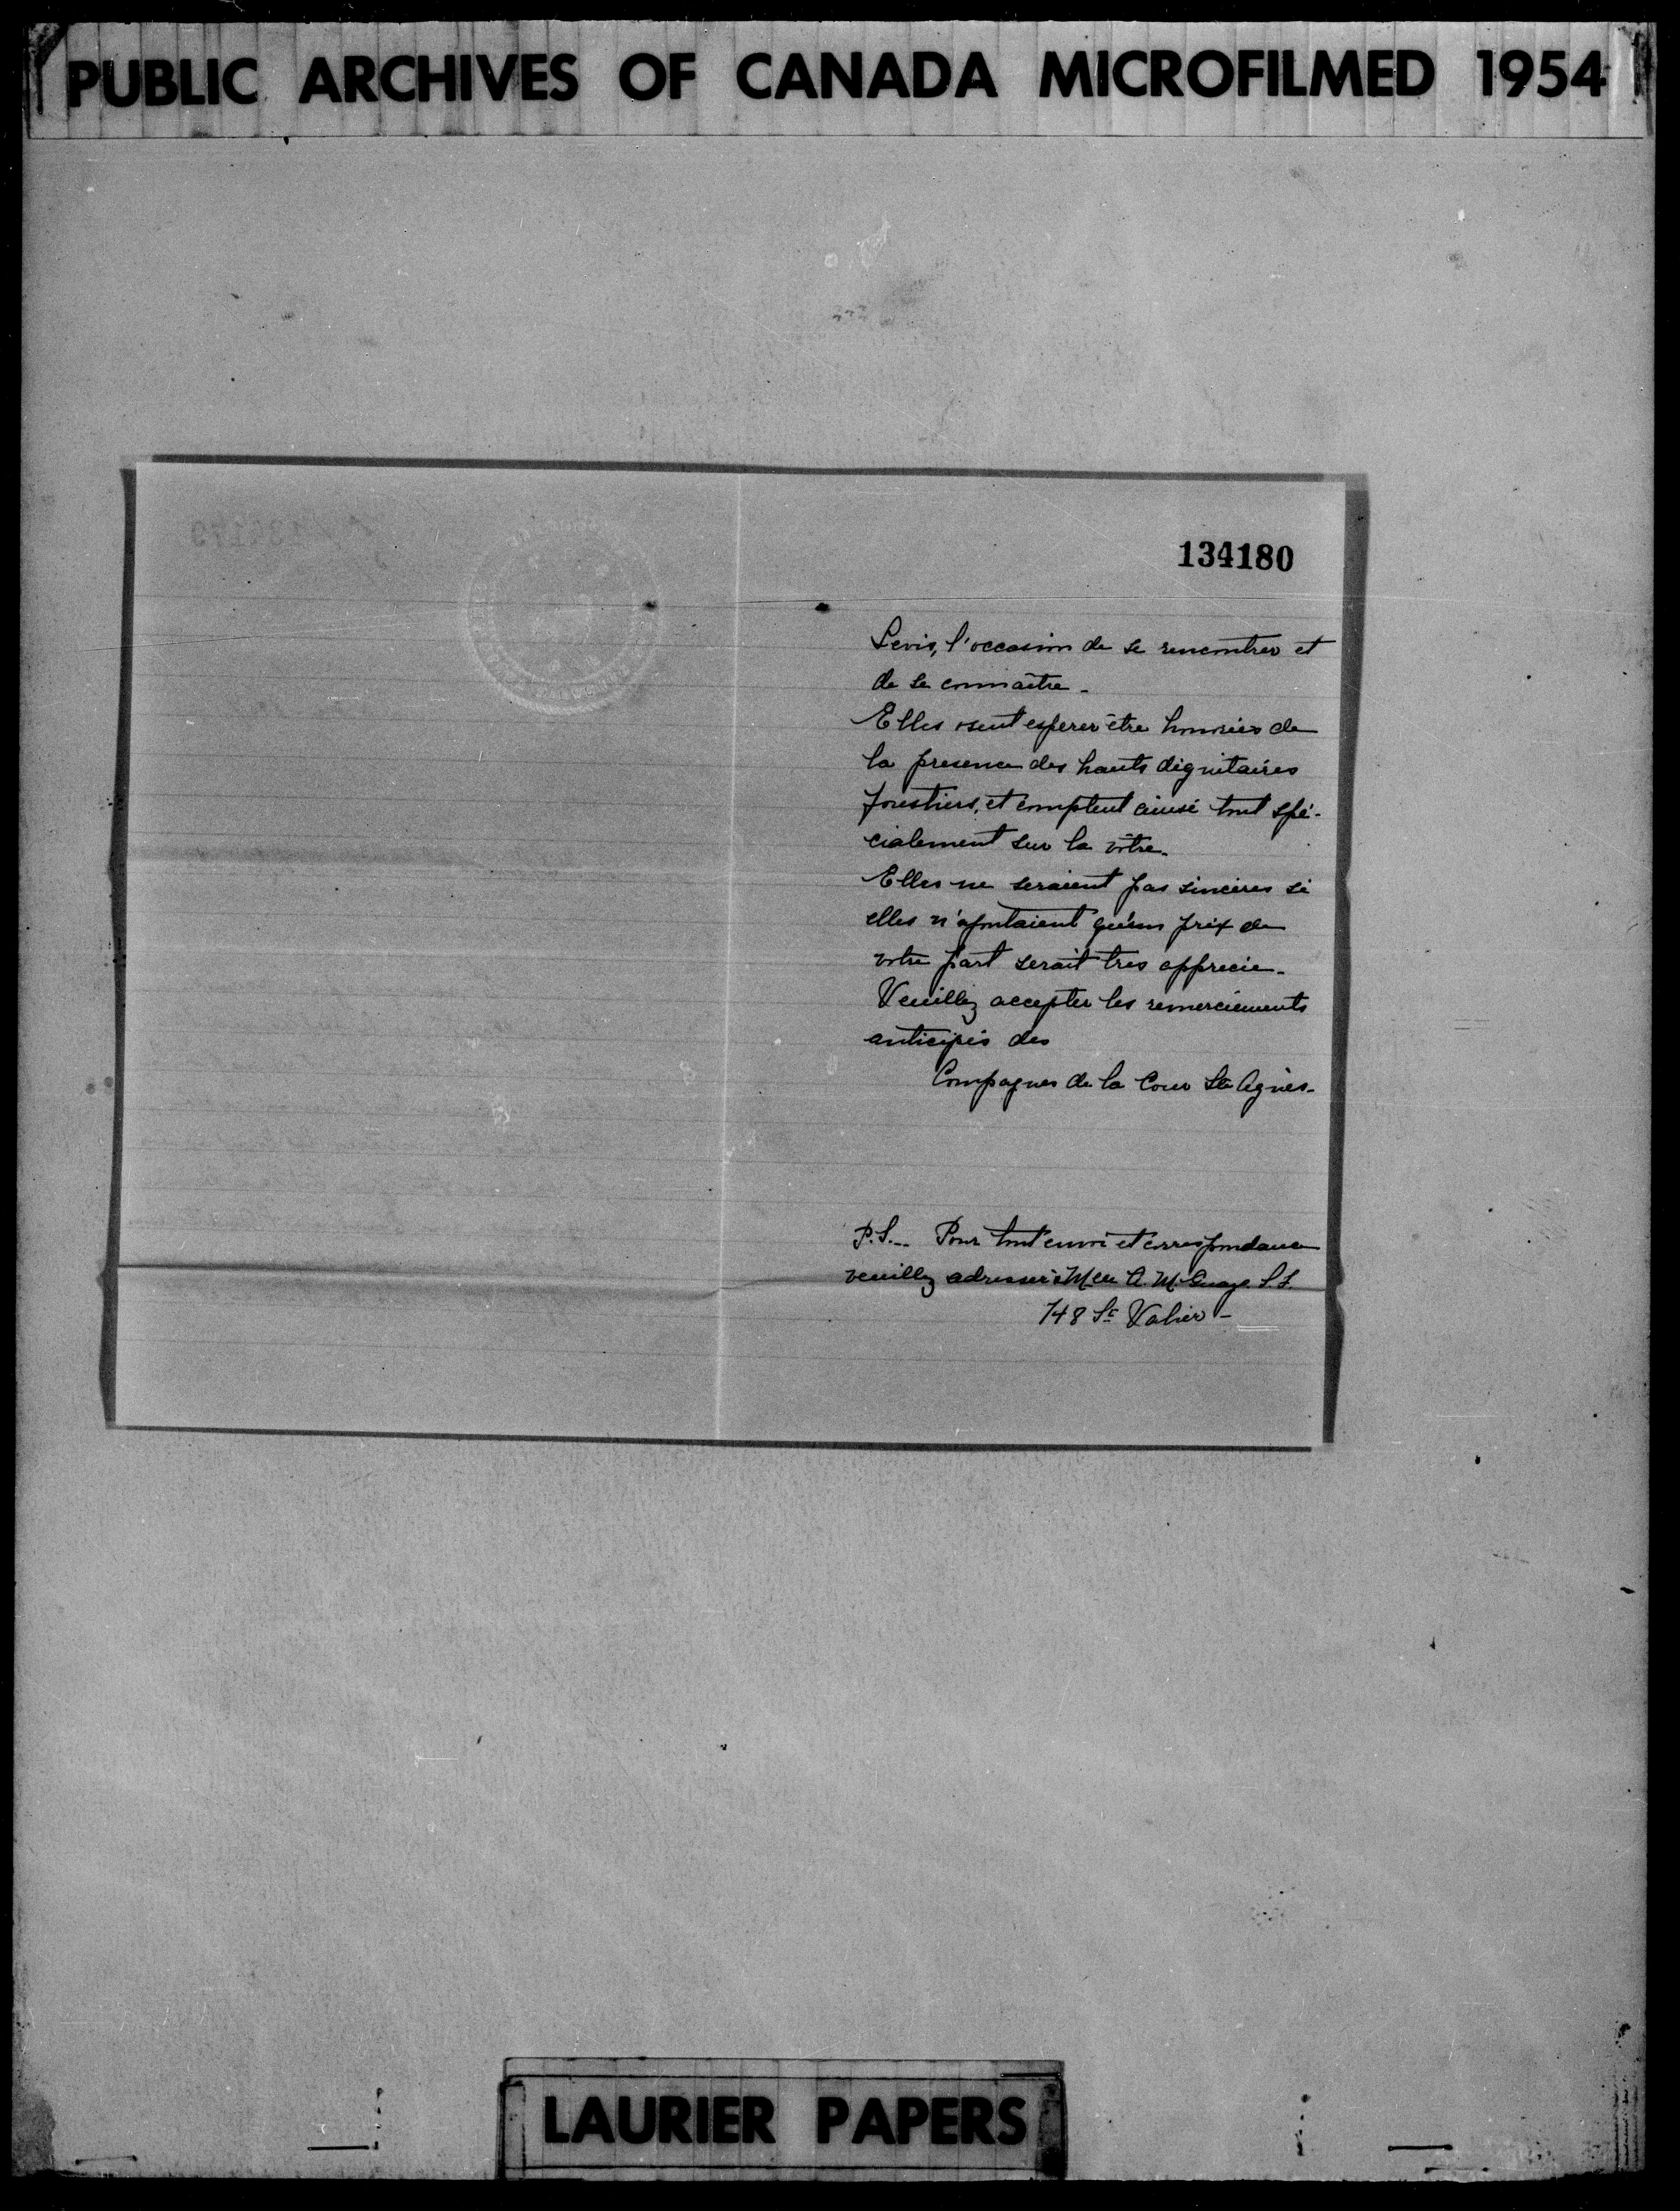 PUBLIC ARCHIVES OF CANADA MICROFILMED 1954
134180
Levis, l'occasion de se rencontrer et
de se connaître.
Elles osent esperer être honorées de
la presence des hauts dignitaires
forestiers, et comptent aussi tout spé-
cialement sur la vôtre.
Elles ne seraient pas sincères si
elles n'ajoutaient qu'un prix de
votre part serait tres apprecie.
Veuillez accepter les remerciements
anticipés des
Compagnes de la Cour Ste Agnès.
P.S. — Pour tout envoi et correspondance
veuillez adresser à Mlle A. S.F.
748 St Valier —
LAURIER PAPERS